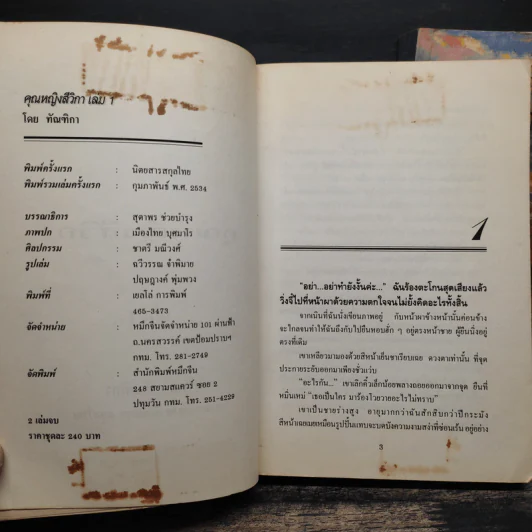 คุณหญิงสีวิกา เล่ม 1
โดย ทัณฑิกา
พิมพ์ครั้งแรก : นิตยสารสกุลไทย
พิมพ์รวมเล่มครั้งแรก : กุมภาพันธ์ พ.ศ. 2534
บรรณาธิการ : สุดาพร ช่วยบำรุง
ภาพปก : เมืองไทย บุศมาโร
ศิลปกรรม : ชาตรี มณีวงศ์
รูปเล่ม : ฉวีวรรณ จำพิมาย
ปฤษฎางค์ พุ่มพวง
พิมพ์ที่ : เยลโล่ การพิมพ์
465-3473
จัดจำหน่าย : หมึกจีนจัดจำหน่าย 101 ผ่านฟ้า
ถ.นครสวรรค์ เขตป้อมปราบฯ
กทม. โทร. 281-2749
จัดพิมพ์ : สำนักพิมพ์หมึกจีน
248 สยามสแควร์ ซอย 2
ปทุมวัน กทม. โทร. 251-6229
2 เล่มจบ
ราคาชุดละ 240 บาท
1
"อย่า...อย่าทำยังงั้นค่ะ..." ฉันร้องตะโกนสุดเสียงแล้ว
วิ่งรี่ไปที่หน้าผาด้วยความตกใจจนไม่ยั้งคิดอะไรทั้งสิ้น
จากเนินที่ฉันนั่งเขียนภาพอยู่ กับหน้าผาข้างหน้านั้นค่อนข้าง
จะไกลจนทำให้ฉันถึงกับไปยืนหอบฮั่ก ๆ อยู่ตรงหน้าชาย ผู้ยืนนิ่งอยู่
ตรงที่เดิม
เขาเหลียวมามองด้วยสีหน้าเย็นชาเรียบเฉย ดวงตาเท่านั้น ที่จุด
ประกายระยับออกมาเพียงชั่วแวบ
"อะไรกัน..." เขาเลิกคิ้วเล็กน้อยพลางถอยออกมาจากจุด ยืนที่
หมิ่นเหม่ "เธอเป็นใคร มาร้องโวยวายอะไรไม่ทราบ"
เขาเป็นชายร่างสูง อายุมากกว่าฉันสักสิบกว่าปีกระมัง
สีหน้าเฉยเมยเหมือนรูปปั้นแทบจะบดบังความงามสง่าที่ซ่อนเร้น อยู่อย่าง
3